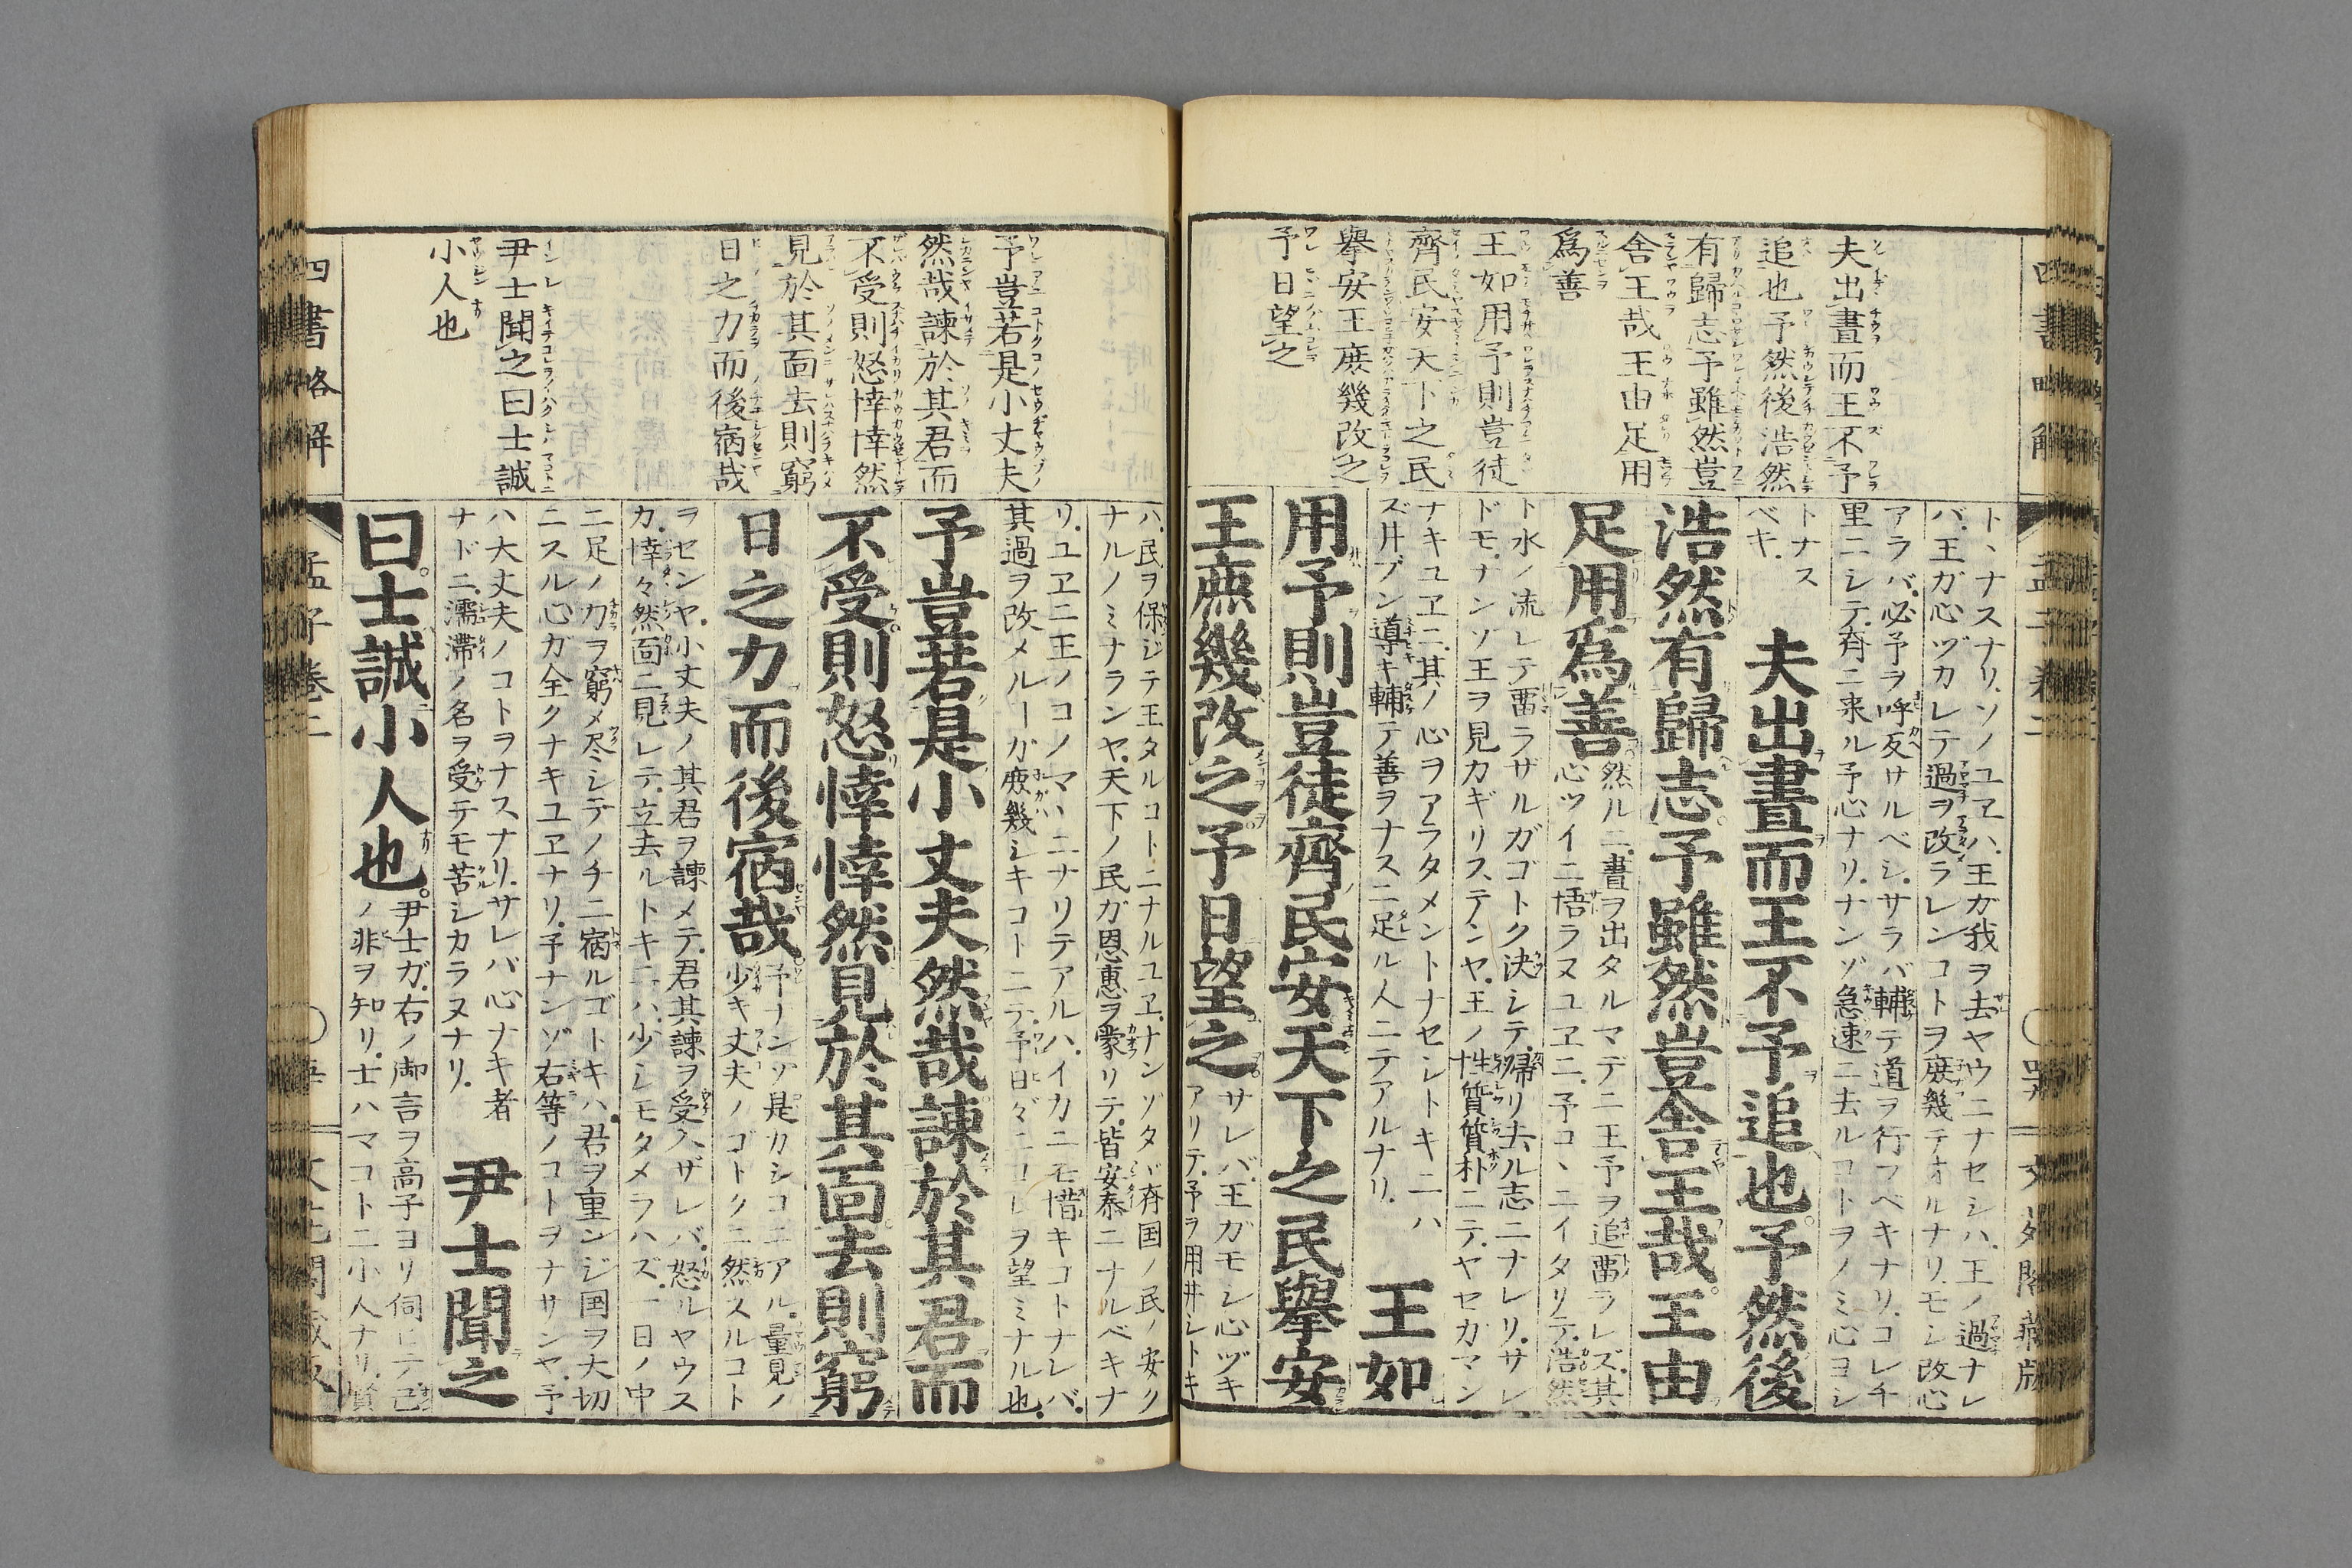 夫出晝而王不予
追也予然後浩然
有歸志予雖然豈
舍王哉王由足用
爲善
王如用予則豈徒
齊民安天下之民
擧安王庶幾改之
予日望之
トヽナスナリ.ソノユヱハ.王ガ我ヲ去ヤウニナセシハ.王ノ過ナレ
バ.王ガ心ヅカレテ過ヲ改ラレンコトヲ庶幾テオルナリ.モシ改心
アラバ.必予ヲ呼反サルベシ.サラバ輔テ道ヲ行フベキナリ.コレ千
里ニシテ.斉ニ来ル予心ナリ.ナンゾ急速ニ去ルコトヲノミ心ヨシ
トナス
ベキ.
夫出晝而王不予追也予然後
浩然有歸志予雖然豈舍王哉王由
足用爲善
然ルニ.晝ヲ出タルマデニ王予ヲ追畱ラレズ.其
心ツイニ悟ラヌユヱニ.予コヽニイタリテ.浩然
ト水ノ流レテ畱ラザルガゴトク決シテ.帰リ去ル志ニナレリ.サレ
ドモ.ナンソ王ヲ見カギリステンヤ.王ノ性質質朴ニテ.ヤセガマン
ナキユヱニ.其ノ心ヲアラタメントナセシトキニハ
ズ井ブン導キ輔テ善ヲナスニ足ル人ニテアルナリ.
王如
用予則豈徒齊民安天下之民擧安
王庶幾改之予日望之
サレバ.王ガモシ心ヅキ
アリテ.予ヲ用井シトキ
四書略解
孟子卷二
予豈若是小丈夫
然哉諫於其君而
不受則怒悻悻然
見於其面去則窮
日之力而後宿哉
尹士聞之曰士誠
小人也
ハ.民ヲ保ジテ王タルコトニナルユヱ.ナンゾタヾ斉国ノ民ノ安ク
ナルノミナランヤ.天下ノ民ガ恩惠ヲ蒙リテ.皆安泰ニナルベキナ
リ.ユヱニ王ノコノマヽニナリテアルハ.イカニモ惜キコトナレバ.
其過ヲ改メルーガ庶幾シキコトニテ.予日ヾニコレヲ望ミナル也.
予豈若是小丈夫然哉諫於其君而
不受則怒悻悻然見於其面去則窮
日之力而後宿哉
予ナンゾ是カシコニアル.量見ノ
少キ丈夫ノゴトクニ然スルコト
ヲセンヤ.小丈夫ノ其君ヲ諫メテ.君其諫ヲ受入ザレバ.怒ルヤウス
カ.悻々然面ニ見レテ.立去ルトキニハ.少シモタメラハズ.一日ノ中
ニ足ノ力ヲ窮メ尽シテノチニ宿ルゴトキハ.君ヲ重ンジ国ヲ大切
ニスル心ガ全クナキユヱナリ.予ナンゾ右等ノコトヲナサンヤ.予
ハ大丈夫ノコトヲナスナリ.サレバ心ナキ者
ナドニ.濡滞ノ名ヲ受テモ苦シカラヌナリ.
尹士聞之
曰士誠小人也
尹士ガ.右ノ御言ヲ高子ヨリ伺ヒテ.己
ノ非ヲ知リ.士ハマコトニ小人ナリ.賢
四書略解
孟子卷二